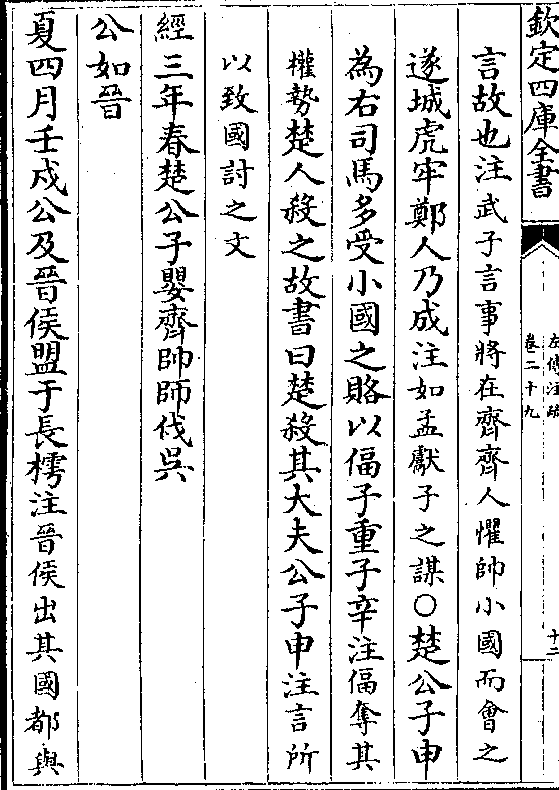 欽定四庫全書
左傳注疏
卷二十九
十二
言故也注武子言事將在齊齊人懼帥小國而會之
遂城虎牢鄭人乃成注如孟獻子之謀〇楚公子申
為右司馬多受小國之賂以偪子重子辛注偪奪其
權勢楚人殺之故書曰楚殺其大夫公子申注言所
以致國討之文
經三年春楚公子嬰齊帥師伐吳
公如晉
夏四月壬戌公及晉侯盟于長樗注晉侯出其國都與